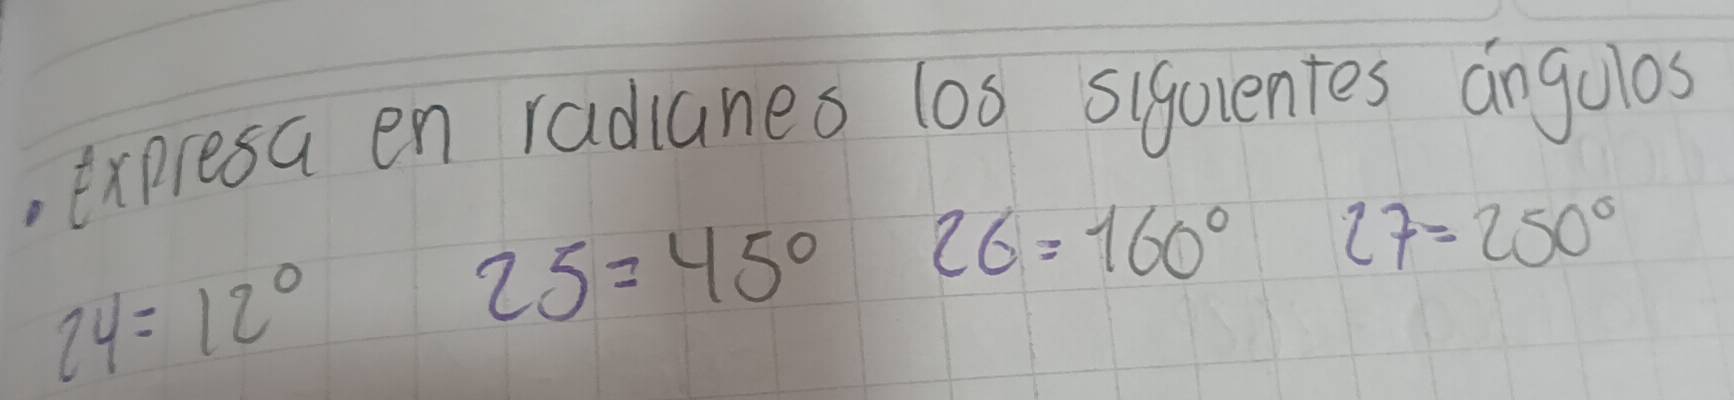 . Expresa en radianes los siguientes ángulos
24= 12° 25= 45° 26= 160° 27= 250°